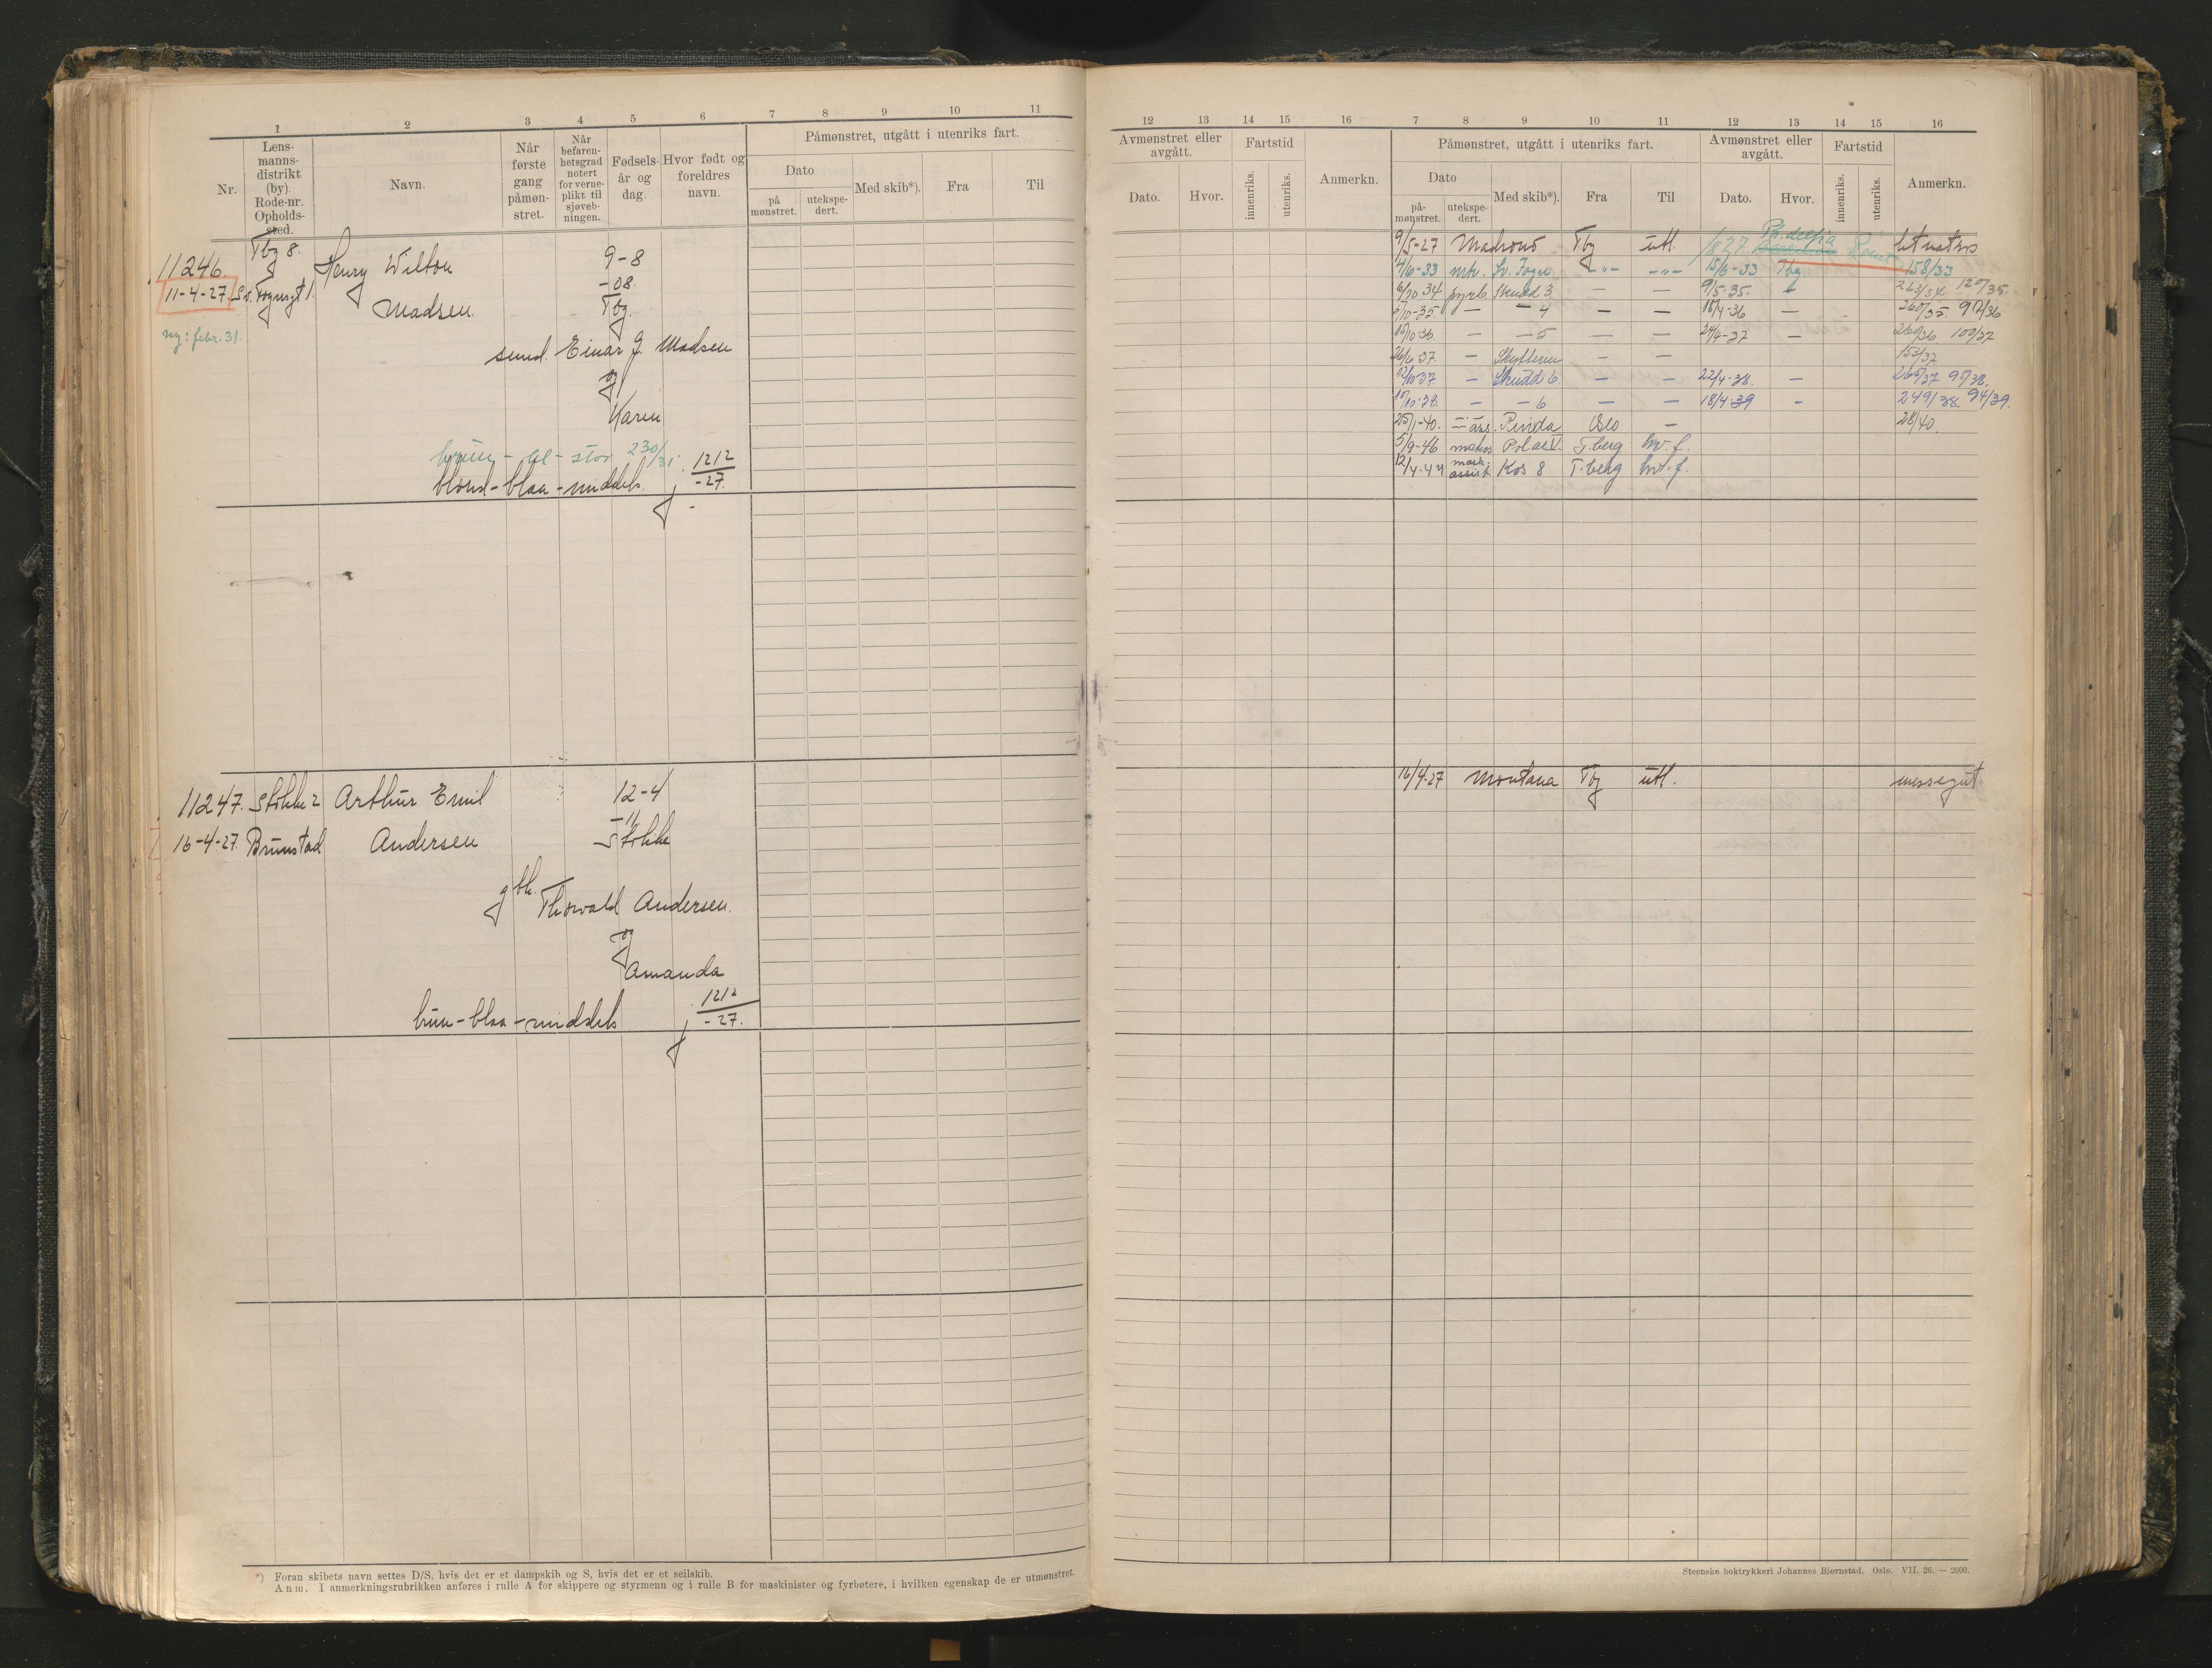 1 2 3 4 5 6 7 8 9 10 11
Nr.
Lens-
manns-
distrikt
(by)
Rode-nr.
Opholds-
sted.
Navn.
Når
første
gang
påmøn-
stret.
Når
befaren-
hetsgrad
notert
for verne-
plikt til
sjøveb-
ningen.
Fødsels-
år og
dag.
Hvor født og
foreldres
navn.
Påmønstret, utgått i utenriks fart.
Dato
på
mønstret.
utekspe-
dert.
Med skib*).
Fra
Til
11246. Tbg 8. Henry Wilton 9-8
11-4-27. -08.
Madsen. Tbg.
ny: febr. 31.
sund. Einar J. Madsen
og
Karen
- bl - stor 230/31.
blond - blaa - middels. j. 1212/-27.
11247. Stokke 2 Arthur Emil 12-4
-11
16-4-27. Brunstad Andersen Stokke
gbk.
Thorvald Andersen.
og
Amanda
brun - blaa - middels j. 1212/-27.
*) Foran skibets navn settes D/S. hvis det er et dampskib og S, hvis det er et seilskib.
Anm. I anmerkningsrubrikken anføres i rulle A for skippere og styrmenn og i rulle B for maskinister og fyrbøtere, i hvilken egenskap de er utmønstret.
12 13 14 15 16 7 8 9 10 11 12 13 14 15 16
Avmønstret eller
avgått.
Dato.
Hvor.
Fartstid
innenriks.
utenriks.
Anmerkn.
Påmønstret, utgått i utenriks fart.
Dato
på-
mønstret.
utekspe-
dert.
Med skib*).
Fra
Til
Avmønstret eller
avgått.
Dato.
Hvor.
Fartstid
innenriks.
utenriks.
Anmerkn.
9/5-27 Madrono Tbg utl. /8 27
4/6-33 mtr. Sv. Foyn -"- -"- 15/6-33 Tbg 158/33
6/10 34 fyrb. Skudd 3 — — 9/5-35. - 263/34 /35.
/10-35. — — 4 — — 18/4-36 — 260/35. 97/36
/10 36. — — 5 — — 24/4-37 — 260/36 100/37
26/6 37. — Skytteren — — 153/37
12/10 37 — Skudd 6 — — 22/4-38. — 265/37 95/38.
/10-38. — — 6 — — 18/4-39 — 249/38. 94/39.
25/1-40. — ass. Pinda Oslo — 28/40.
5/9-46 Polar V. T.berg hv. f.
12/4-47 mask. assist. Kos 8 T.berg hv. f.
16/4-27 Montana Tbg utl. messegut.
Steenske boktrykkeri Johannes Bjørnstad, Oslo. VII. 26. — 2000.